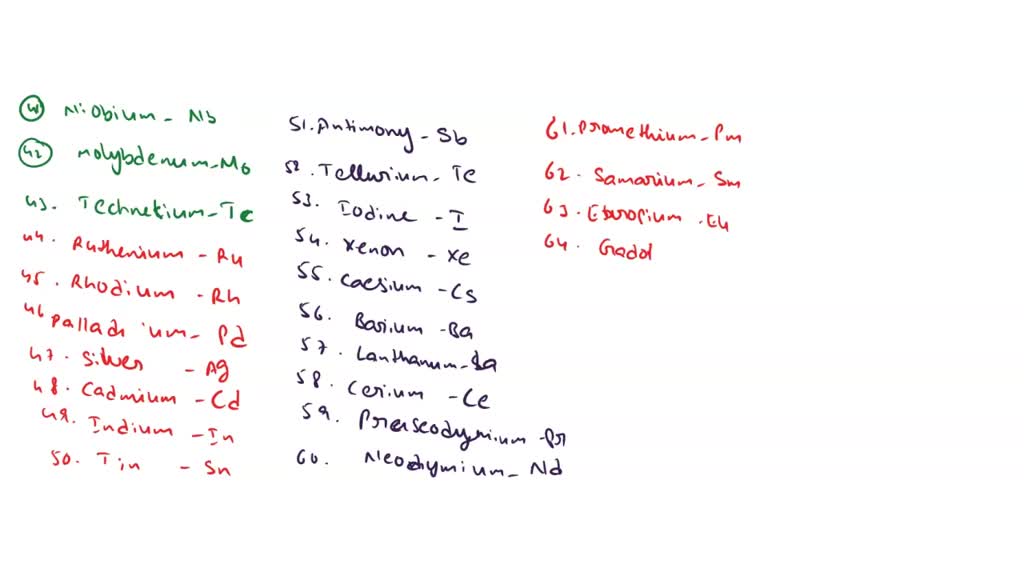 41 Niobium - Nb
42 Molybdenum - Mo
43. Technetium - Tc
44. Ruthenium - Ru
45. Rhodium - Rh
46 Palladium - Pd
47. Silver - Ag
48. Cadmium - Cd
49. Indium - In
50. Tin - Sn
51. Antimony - Sb
52. Tellurium - Te
53. Iodine - I
54. Xenon - Xe
55. Caesium - Cs
56. Barium - Ba
57. Lanthanum - La
58. Cerium - Ce
59. Praseodymium - Pr
60. Neodymium - Nd
61. Promethium - Pm
62. Samarium - Sm
63. Europium - Eu
64. Gadol